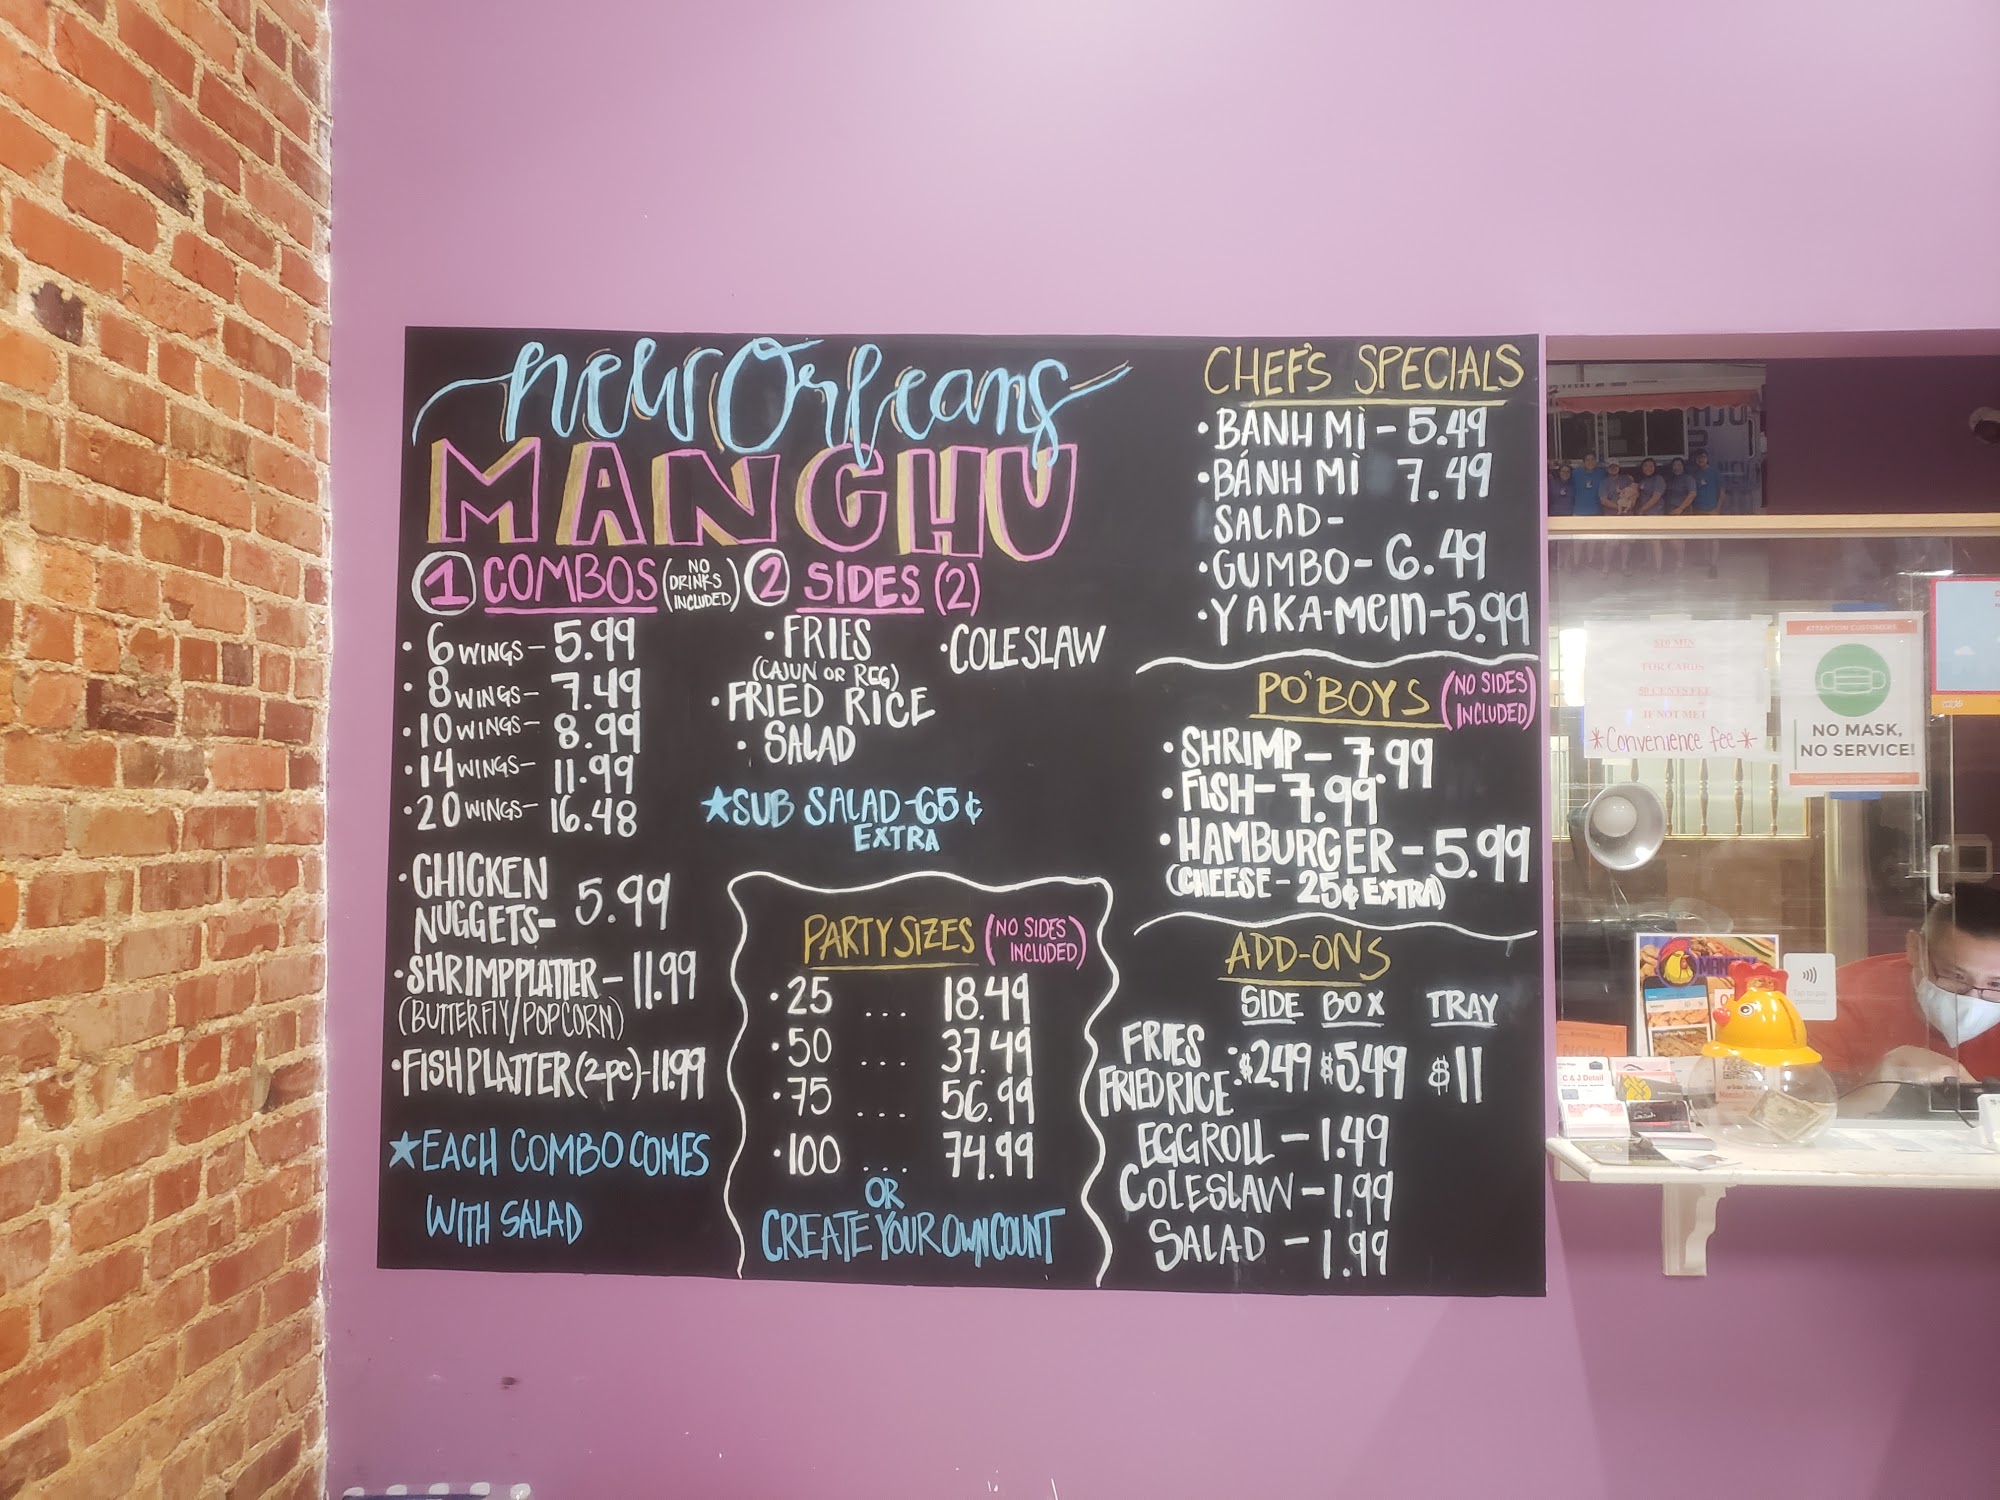 New Orleans
MANCHU
1 COMBOS (NO DRINKS INCLUDED)
• 6 WINGS - 5.99
• 8 WINGS - 7.49
• 10 WINGS - 8.99
• 14 WINGS - 11.99
• 20 WINGS - 16.48
• CHICKEN
NUGGETS - 5.99
• SHRIMP PLATTER - 11.99
(BUTTERFLY/POPCORN)
• FISH PLATTER (2pc) - 11.99
★ EACH COMBO COMES
WITH SALAD
2 SIDES (2)
• FRIES
(CAJUN OR REG)
• COLESLAW
• FRIED RICE
• SALAD
★ SUB SALAD - 65¢
EXTRA
PARTY SIZES (NO SIDES INCLUDED)
• 25 ... 18.49
• 50 ... 37.49
• 75 ... 56.99
• 100 ... 74.99
OR
CREATE YOUR OWN COUNT
CHEF'S SPECIALS
• BÁNH MÌ - 5.49
• BÁNH MÌ 7.49
SALAD -
• GUMBO - 6.49
• YAKA-MEIN - 5.99
PO'BOYS (NO SIDES INCLUDED)
• SHRIMP - 7.99
• FISH - 7.99
• HAMBURGER - 5.99
(CHEESE - 25¢ EXTRA)
ADD-ONS
SIDE BOX TRAY
FRIES
FRIED RICE : $2.49 $5.49 $11
EGGROLL - 1.49
COLESLAW - 1.99
SALAD - 1.99
$10 MIN
FOR CARDS
50 CENTS FEE
IF NOT MET
*Convenience fee*
ATTENTION CUSTOMERS
NO MASK,
NO SERVICE!
Tap to pay
C & J Detail